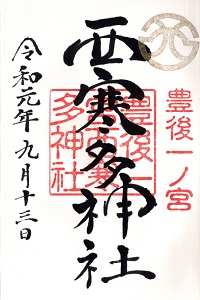 豊後一ノ宮
西寒多神社
豊後一
西寒
多神社
令和元年九月十三日